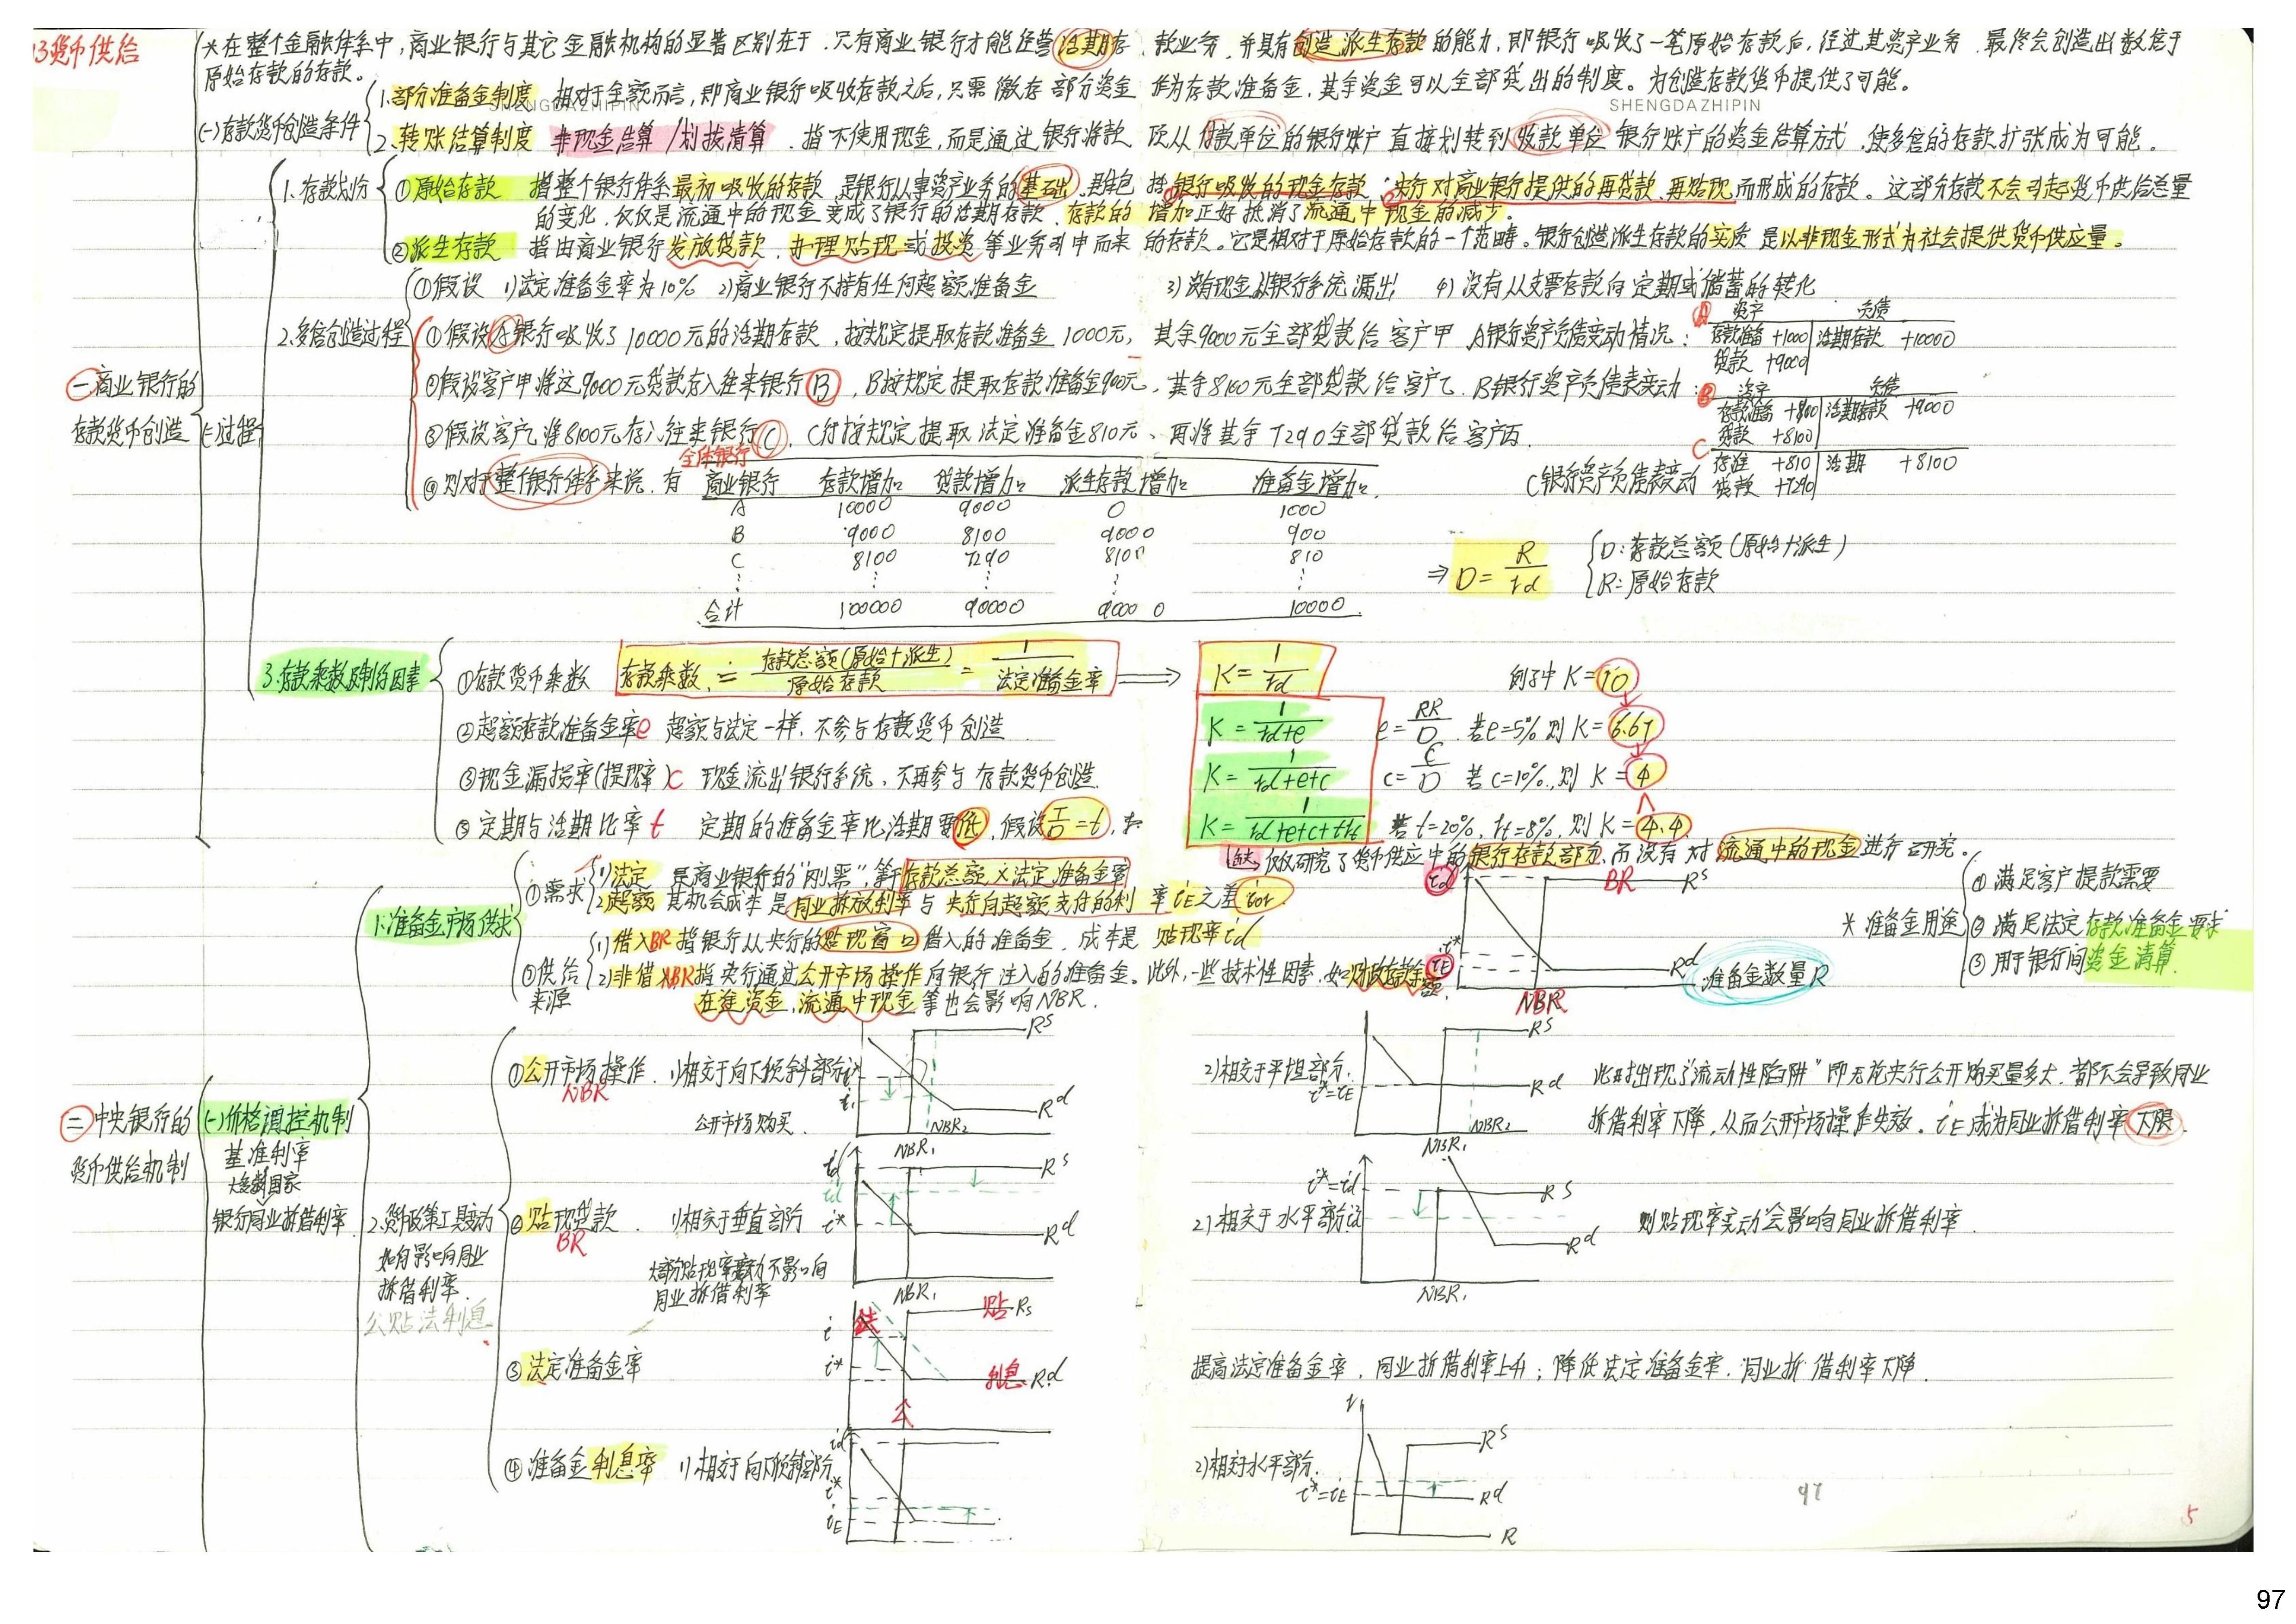 13货币供给
*在整个金融体系中,商业银行与其它金融机构的显著区别在于.只有商业银行才能经营活期存款业务,并具有创造派生存款的能力,即银行吸收了一笔原始存款后,经过其资产业务,最终会创造出数倍于
原始存款的存款。
SHENGDAZHIPIN
SHENGDAZHIPIN
一商业银行的
存款货币创造
(一)存款货币创造条件
1.部分准备金制度 相对于全额而言,即商业银行吸收存款之后,只需缴存部分资金作为存款准备金,其余资金可以全部贷出的制度。为创造存款货币提供了可能。
2.转账结算制度 非现金结算/划拨清算.指不使用现金,而是通过银行将款项从付款单位的银行账户直接划转到收款单位银行账户的资金结算方式,使多倍的存款扩张成为可能。
(二)过程
1.存款划分
①原始存款 指整个银行体系最初吸收的存款,是银行从事资产业务的基础.具体包括银行吸收的现金存款,央行对商业银行提供的再贷款、再贴现而形成的存款。这部分存款不会引起货币供给总量
的变化.仅仅是流通中的现金变成了银行的活期存款.存款的增加正好抵消了流通中现金的减少。
②派生存款 指由商业银行发放贷款、办理贴现或投资等业务引申而来的存款。它是相对于原始存款的一个范畴。银行创造派生存款的实质是以非现金形式为社会提供货币供应量。
2.多倍创造过程
①假设 1)法定准备金率为10% 2)商业银行不持有任何超额准备金 3)没有现金从银行系统漏出 4)没有从支票存款向定期或储蓄的转化
①假设A银行吸收了10000元的活期存款,按规定提取存款准备金1000元,其余9000元全部贷款给客户甲 A银行资产负债变动情况:
A 资产 负债
存款准备 +1000 活期存款 +10000
贷款 +9000
②假设客户甲将这9000元贷款存入往来银行B,B按规定提取存款准备金900元,其余8100元全部贷款给客户乙.B银行资产负债表变动:
B 资产 负债
存款准备 +900 活期存款 +9000
贷款 +8100
③假设客户乙将8100元存入往来银行C,C行按规定提取法定准备金810元、再将其余7290全部贷款给客户丙.
C银行资产负债表变动
C 存准 +810 活期 +8100
贷款 +7290
全体银行
④则对于整个银行体系来说.有
商业银行 存款增加 贷款增加 派生存款增加 准备金增加
A 10000 9000 0 1000
B 9000 8100 9000 900
C 8100 7290 8100 810
⋮ ⋮ ⋮ ⋮ ⋮
合计 100000 90000 90000 10000
⇒ D=R/rd
D:存款总额(原始+派生)
R:原始存款
3.存款乘数及制约因素
①存款货币乘数 存款乘数=存款总额(原始+派生)/原始存款=1/法定准备金率 ⟹ K=1/rd 例子中 K=10
②超额存款准备金率e 超额与法定一样,不参与存款货币创造. K=1/rd+e e=RR/D.若e=5%则K=6.67
③现金漏损率(提现率)c 现金流出银行系统、不再参与存款货币创造. K=1/rd+e+c c=C/D 若c=10%,则K=4
③定期与活期比率t 定期的准备金率比活期要低,假设T/D=t, K=1/rd+e+c+t·rt 若t=20%,rt=8%,则K=4.4
仅仅研究了货币供应中的银行存款部分,而没有对流通中的现金进行研究。
二中央银行的
货币供给机制
(一)价格调控机制
基准利率
大多数国家
银行同业拆借利率
1.准备金市场供求
①需求
1)法定 是商业银行的“刚需”,等于存款总额×法定准备金率
2)超额 其机会成本是同业拆放利率与央行向超额支付的利率iE之差ior
②供给来源
1)借入BR 指银行从央行的贴现窗口借入的准备金.成本是贴现率id
2)非借入NBR指央行通过公开市场操作向银行注入的准备金。此外,一些技术性因素,如财政存款余额、
在途资金,流通中现金等也会影响NBR.
id BR Rs
i*
iE Rd
NBR 准备金数量R
*准备金用途
①满足客户提款需要
②满足法定存款准备金要求
③用于银行间资金清算.
2.货币政策工具变动
如何影响同业
拆借利率.
公贴法利息
①公开市场操作
NBR
1)相交于向下倾斜部分
公开市场购买.
i* i1 Rs Rd NBR1 NBR2
2)相交于平坦部分.
i*=iE Rs Rd NBR1 NBR2
此时出现了“流动性陷阱”即无论央行公开购买量多大.都不会导致同业
拆借利率下降,从而公开市场操作失效。iE成为同业拆借利率下限.
②贴现贷款
BR
1)相交于垂直部分
大部分贴现率变动不影响
同业拆借利率
id id i* Rs Rd NBR1
2)相交于水平部分
i*=id Rs Rd NBR1
则贴现率变动会影响同业拆借利率.
③法定准备金率
法 贴 Rs
i i* 利息 Rd
公
提高法定准备金率,同业拆借利率上升;降低法定准备金率.同业拆借利率下降.
④准备金利息率
1)相交于向下倾斜部分
id i* iE
2)相交于水平部分.
i*=iE Rs Rd R
97
5
97